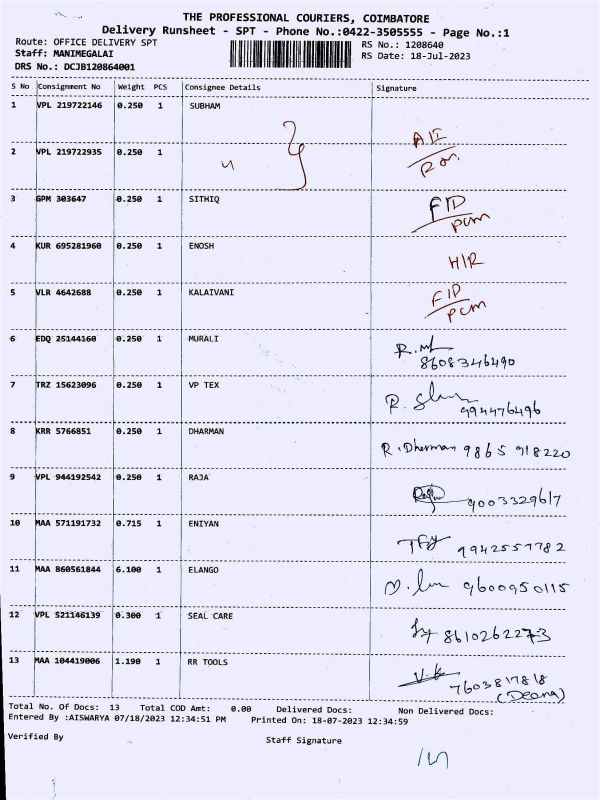 THE PROFESSIONAL COURIERS, COIMBATORE
Delivery Runsheet - SPT - Phone No.:0422-3505555 - Page No.:1
Route: OFFICE DELIVERY SPT
Staff: MANIMEGALAI
DRS No.: DCJB120864001
RS No.: 1208640
RS Date: 18-Jul-2023
S No Consignment No Weight PCS Consignee Details Signature
1 VPL 219722146 0.250 1 SUBHAM
2 VPL 219722935 0.250 1
3 GPM 303647 0.250 1 SITHIQ
4 KUR 695281960 0.250 1 ENOSH H/R
5 VLR 4642688 0.250 1 KALAIVANI
6 EDQ 25144160 0.250 1 MURALI
8608346490
7 TRZ 15623096 0.250 1 VP TEX
994476496
8 KRR 5766851 0.250 1 DHARMAN
R. Dharman 9865 918220
9 VPL 944192542 0.250 1 RAJA
9003329617
10 MAA 571191732 0.715 1 ENIYAN
9942557782
11 MAA 860561844 6.100 1 ELANGO
9600950115
12 VPL 521146139 0.300 1 SEAL CARE
8610262273
13 MAA 104419006 1.190 1 RR TOOLS
7603817818
(Deena)
Total No. Of Docs: 13 Total COD Amt: 0.00 Delivered Docs: Non Delivered Docs:
Entered By :AISWARYA 07/18/2023 12:34:51 PM Printed On: 18-07-2023 12:34:59
Verified By Staff Signature